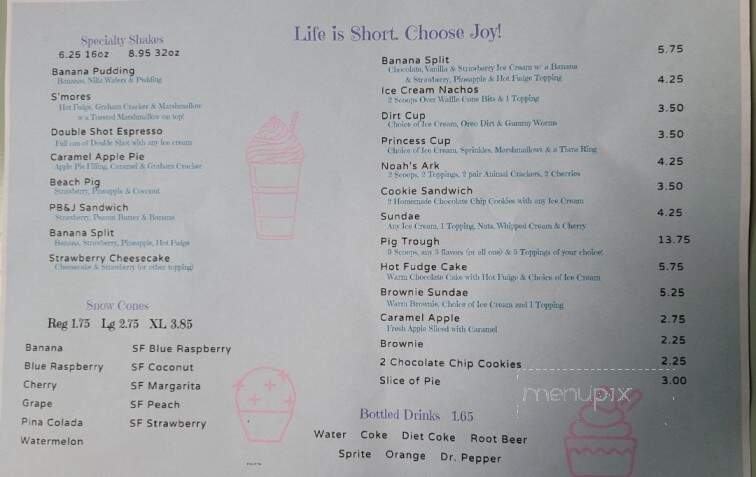 Life is Short. Choose Joy!
Specialty Shakes
6.25 16oz 8.95 32oz
Banana Pudding
Bananas, Nilla Wafers & Pudding
S'mores
Hot Fudge, Graham Cracker & Marshmallow
w/a Toasted Marshmallow on top!
Double Shot Espresso
Full can of Double Shot with any ice cream
Caramel Apple Pie
Apple Pie Filling, Caramel & Graham Cracker
Beach Pig
Strawberry, Pineapple & Coconut
PB&J Sandwich
Strawberry, Peanut Butter & Banana
Banana Split
Banana, Strawberry, Pineapple, Hot Fudge
Strawberry Cheesecake
Cheesecake & Strawberry (or other topping)
Snow Cones
Reg 1.75 Lg 2.75 XL 3.85
Banana SF Blue Raspberry
Blue Raspberry SF Coconut
Cherry SF Margarita
Grape SF Peach
Pina Colada SF Strawberry
Watermelon
Banana Split 5.75
Chocolate, Vanilla & Strawberry Ice Cream w/ a Banana
& Strawberry, Pineapple & Hot Fudge Topping
Ice Cream Nachos 4.25
2 Scoops Over Waffle Cone Bits & 1 Topping
Dirt Cup 3.50
Choice of Ice Cream, Oreo Dirt & Gummy Worms
Princess Cup 3.50
Choice of Ice Cream, Sprinkles, Marshmallows & a Ring
Noah's Ark 4.25
2 Scoops, 2 Toppings, 2 pair Animal Crackers, 2 Cherries
Cookie Sandwich 3.50
2 Homemade Chocolate Chip Cookies with any Ice Cream
Sundae 4.25
Any Ice Cream, 1 Topping, Nuts, Whipped Cream & Cherry
Pig Trough 13.75
Scoops, any 3 flavors (or all one) & 5 Toppings of your choice!
Hot Fudge Cake 5.75
Warm Chocolate Cake with Hot Fudge & Choice of Ice Cream
Brownie Sundae 5.25
Warm Brownie, Choice of Ice Cream and 1 Topping
Caramel Apple 2.75
Fresh Apple Sliced with Caramel
Brownie 2.25
2 Chocolate Chip Cookies 2.25
Slice of Pie 3.00
menupix
Bottled Drinks 1.65
Water Coke Diet Coke Root Beer
Sprite Orange Dr. Pepper